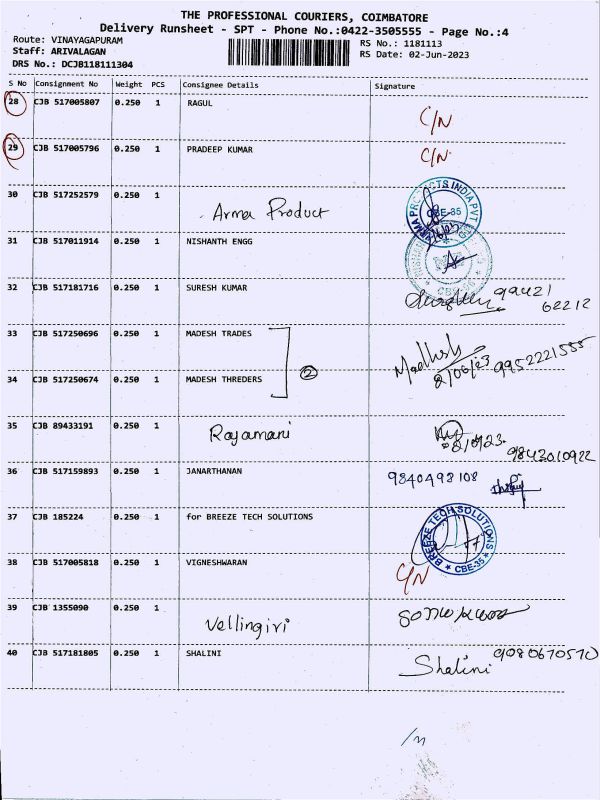 THE PROFESSIONAL COURIERS, COIMBATORE
Delivery Runsheet - SPT - Phone No.:0422-3505555 - Page No.:4
Route: VINAYAGAPURAM
RS No.: 1181113
Staff: ARIVALAGAN
RS Date: 02-Jun-2023
DRS No.: DCJB118111304
S No Consignment No Weight PCS Consignee Details Signature
28 CJB 517005807 0.250 1 RAGUL C/N
29 CJB 517005796 0.250 1 PRADEEP KUMAR C/N
30 CJB 517252579 0.250 1 Arma Product
CBE-35
31 CJB 517011914 0.250 1 NISHANTH ENGG
32 CJB 517181716 0.250 1 SURESH KUMAR 99421
62212
33 CJB 517250696 0.250 1 MADESH TRADES Madhesh
2/06/23 9952221555
34 CJB 517250674 0.250 1 MADESH THREDERS 2
35 CJB 89433191 0.250 1 Rajamani
9843010922
36 CJB 517159893 0.250 1 JANARTHANAN 9840498108
37 CJB 185224 0.250 1 for BREEZE TECH SOLUTIONS BREEZE TECH SOLUTIONS
CBE-35
38 CJB 517005818 0.250 1 VIGNESHWARAN C/N
39 CJB 1355090 0.250 1 Vellingiri
40 CJB 517181805 0.250 1 SHALINI 9080670570
Shalini